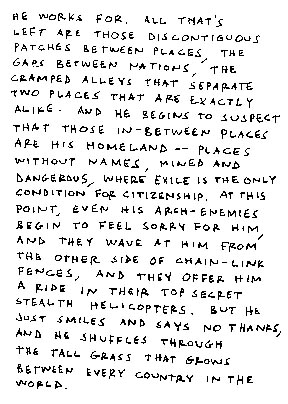 HE WORKS FOR. ALL THAT'S
LEFT ARE THOSE DISCONTIGUOUS
PATCHES BETWEEN PLACES, THE
GAPS BETWEEN NATIONS, THE
CRAMPED ALLEYS THAT SEPARATE
TWO PLACES THAT ARE EXACTLY
ALIKE. AND HE BEGINS TO SUSPECT
THAT THOSE IN-BETWEEN PLACES
ARE HIS HOMELAND -- PLACES
WITHOUT NAMES, MINED AND
DANGEROUS, WHERE EXILE IS THE ONLY
CONDITION FOR CITIZENSHIP. AT THIS
POINT, EVEN HIS ARCH-ENEMIES
BEGIN TO FEEL SORRY FOR HIM,
AND THEY WAVE AT HIM FROM
THE OTHER SIDE OF CHAIN-LINK
FENCES, AND THEY OFFER HIM
A RIDE IN THEIR TOP SECRET
STEALTH HELICOPTERS. BUT HE
JUST SMILES AND SAYS NO THANKS,
AND HE SHUFFLES THROUGH
THE TALL GRASS THAT GROWS
BETWEEN EVERY COUNTRY IN THE
WORLD.